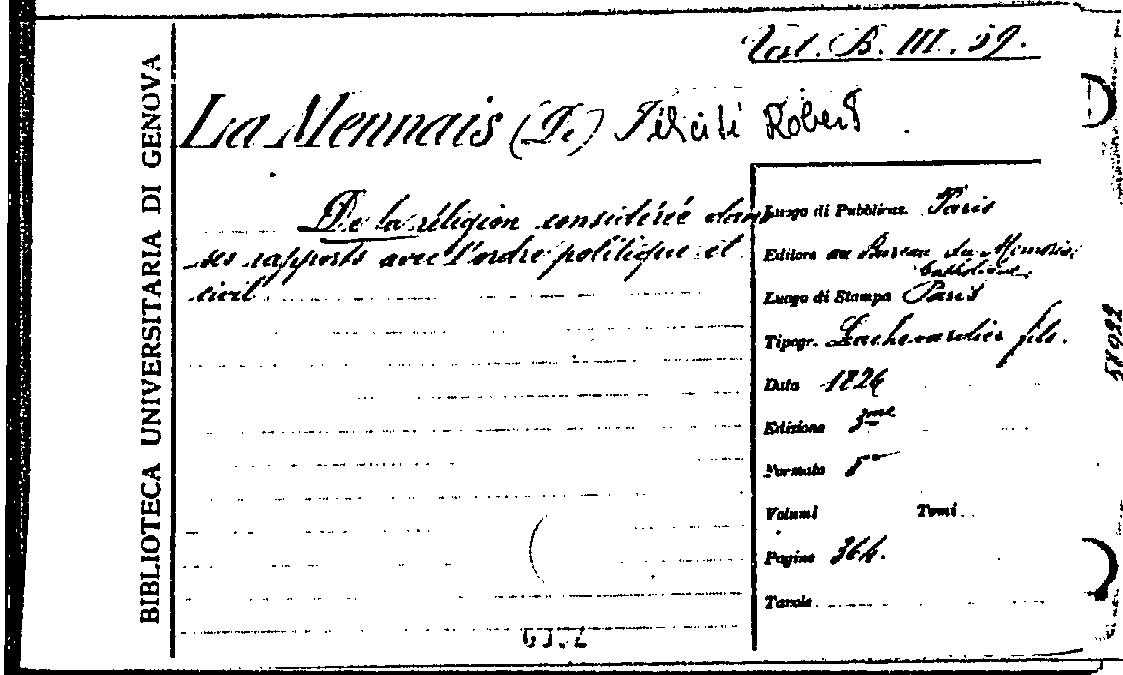 BIBLIOTECA UNIVERSITARIA DI GENOVA
B. III. 59.
La Mennais (De) Félicité Robert
De la réligion considérée dans
ses rapports avec l'ordre politique et
civil
Luogo di Pubblicaz. Paris
Editore au Bureau du Mémorial
Catholique
Luogo di Stampa Paris
Tipogr. Lachevardier fils.
Data 1826
Edizione 3me
Formato 8°
Volumi Tomi
Pagine 364.
Tavole